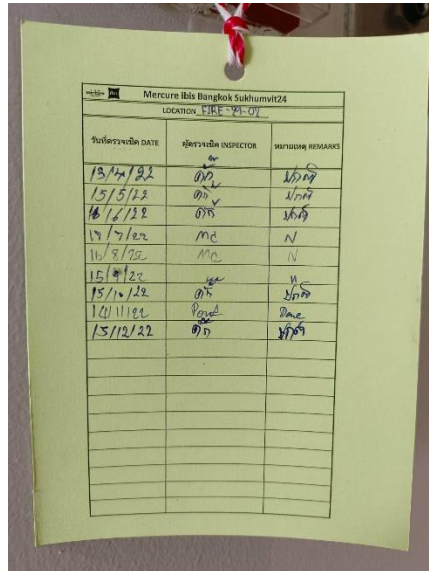 Mercure ibis Bangkok Sukhumvit24
LOCATION FIRE-29-02
วันที่ตรวจเช็ค DATE ผู้ตรวจเช็ค INSPECTOR หมายเหตุ REMARKS
13/4/22 ปกติ
15/5/22 ปกติ
16/6/22 ปกติ
17/7/22 MC N
16/8/22 MC N
15/9/22 "
15/10/22 ปกติ
14/11/22 Pond Done
13/12/22 ปกติ